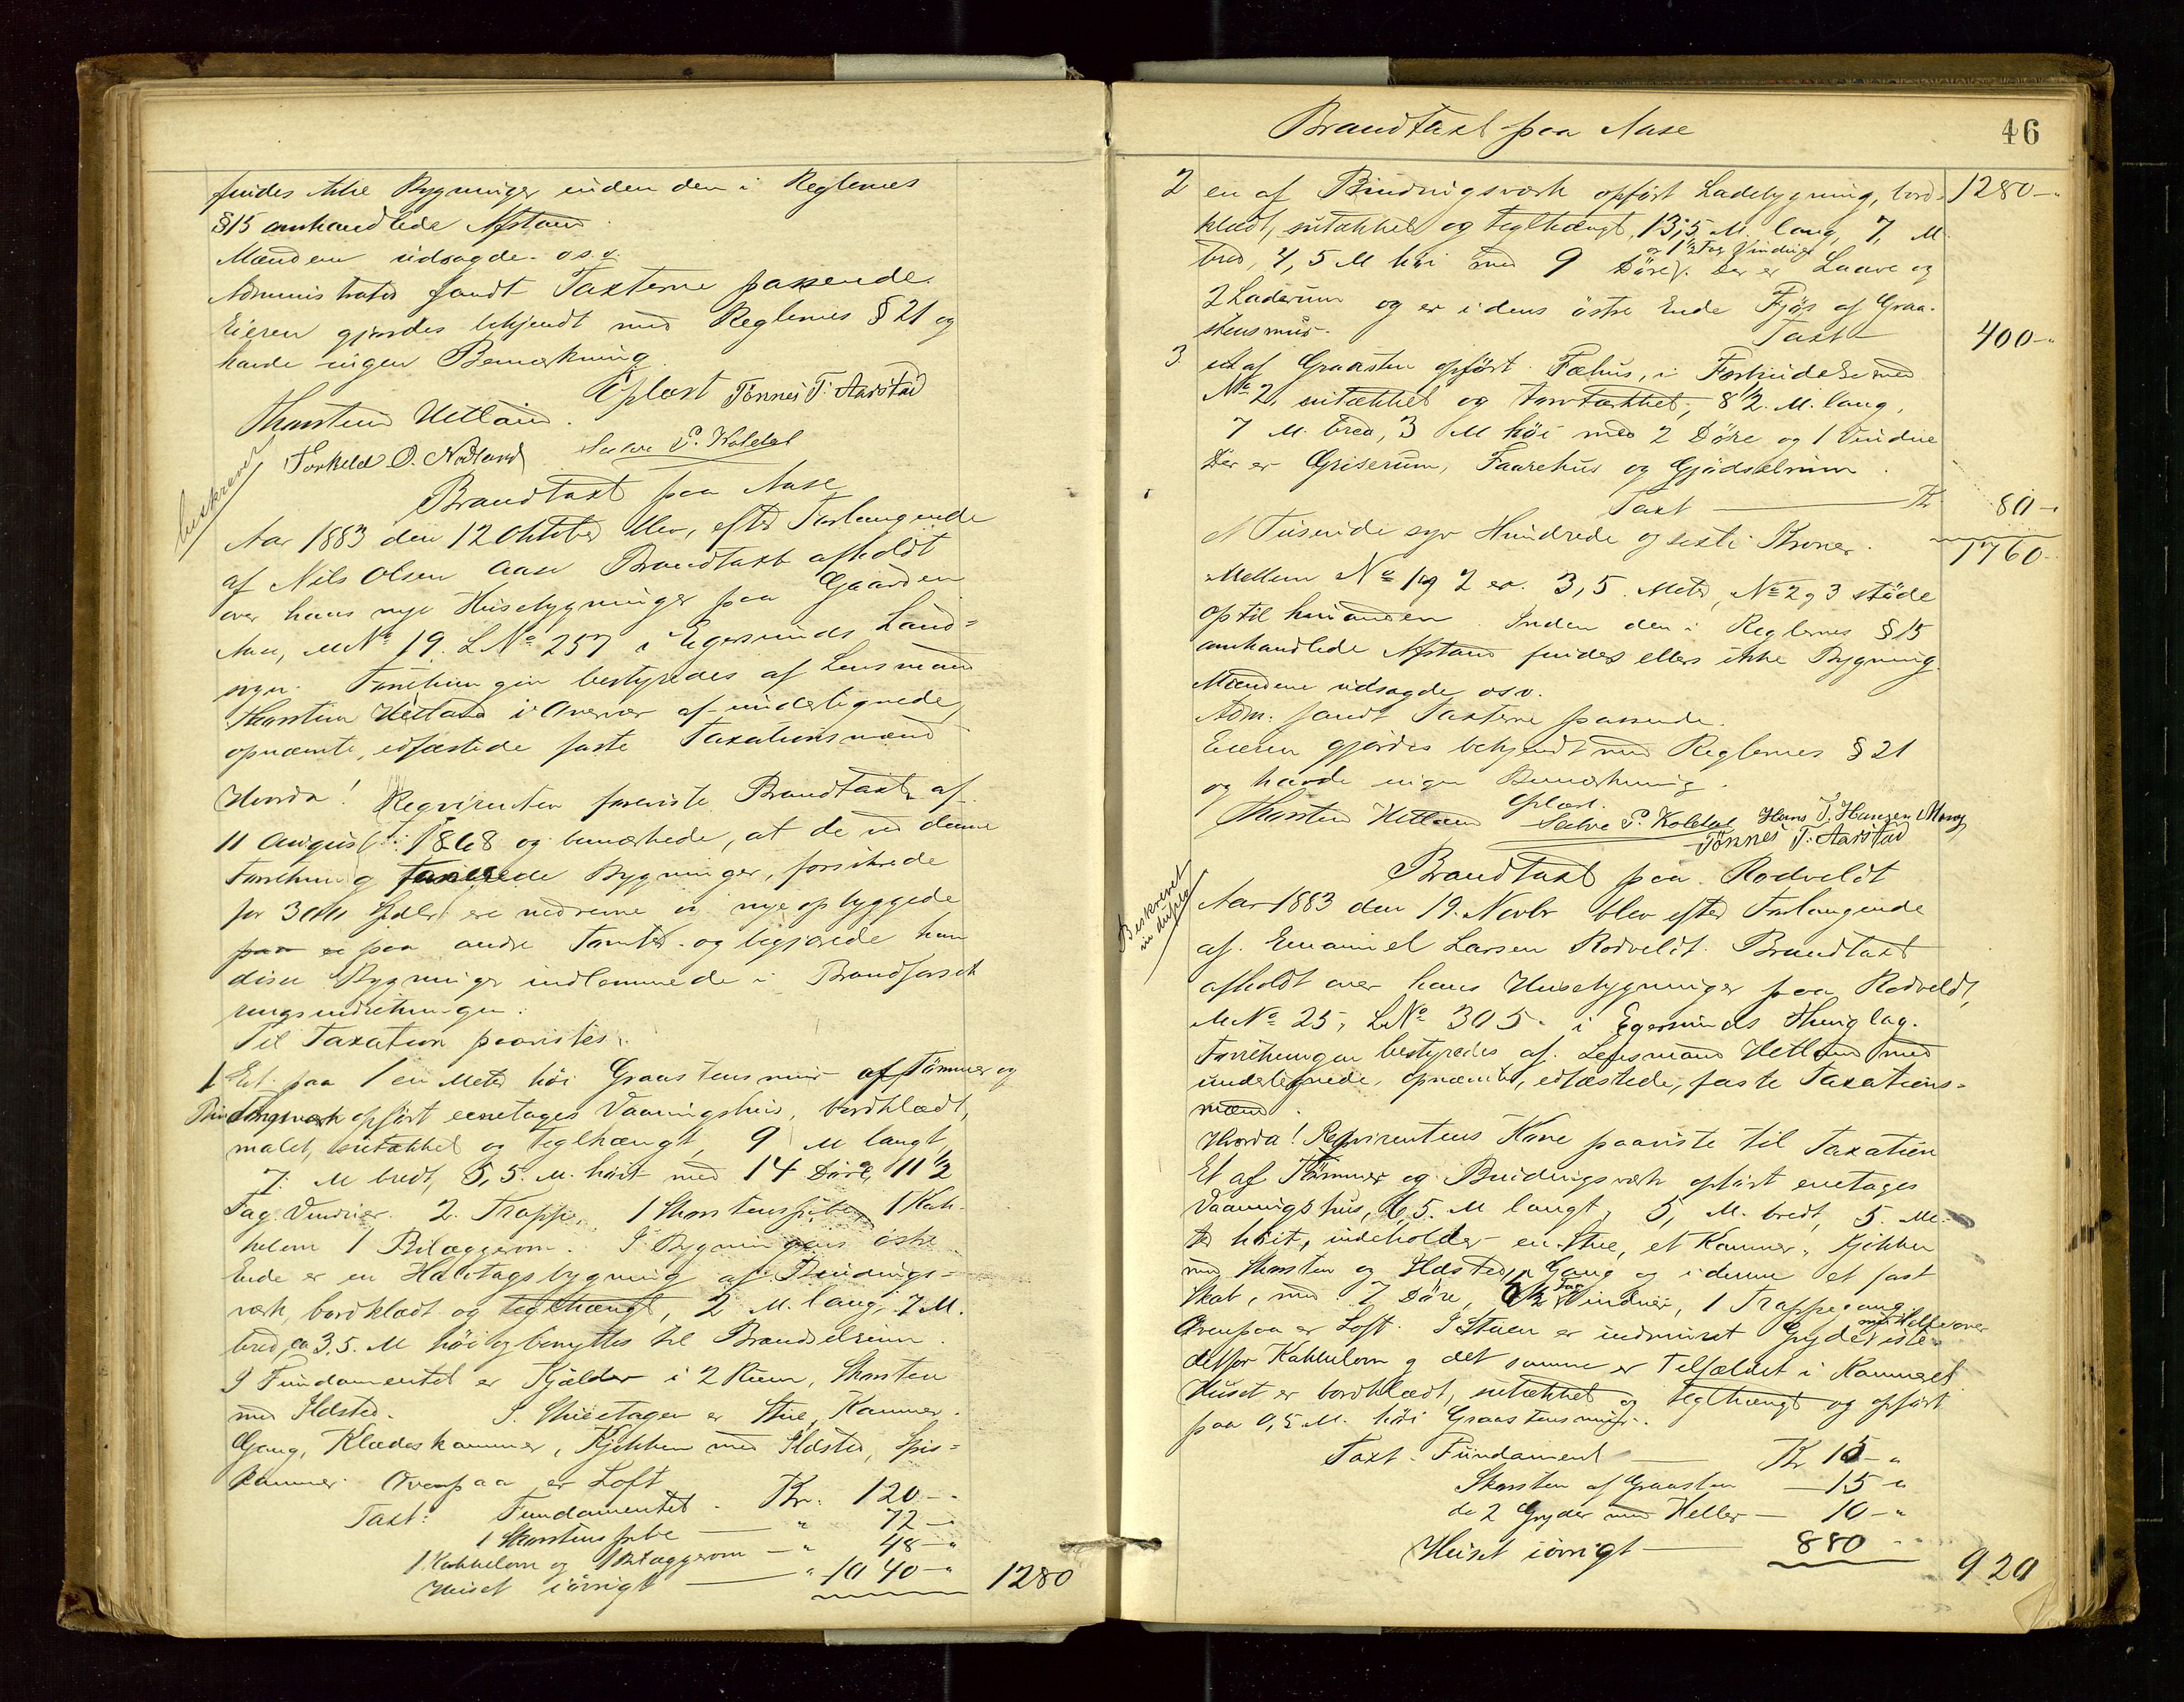 findes ikke Bygninger inden den i Reglernes
§15 omhandlede Afstand.
Mændene udsagde o.s.v.
Administrator fandt Taxterne passende.
Eieren gjordes bekjendt med Reglernes §21 og
havde ingen Bemærkning.
Oplæst Tönnes T. Aarstad
Thorsten Hetland.
Torkeld O. Nodland Salve P. Koldal
beskrevet
Brandtaxt paa Aase
Aar 1883 den 12 Oktober blev, efter Forlangende
af Nils Olsen Aase Brandtaxt afholdt
over hans nye Husebygninger paa Gaarden
Aase, MNo 19. LNo 257 i Egersunds Land=
sogn. Forretningen bestyredes af Lensmand
Thorsten Hetland i Overvær af undertegnede,
opnævnte, edfæstede faste Taxationsmænd
Hvorda! Reqvirenten foreviste Brandtaxt af
11 August 1868 og bemærkede, at de ved denne
Forretning taxerede Bygninger, forsikrede
for 300 Spdlr. ere nedrevne og nye opbyggede
paa andre Tomter og begjærede han
disse Bygninger indlemmede i Brandforsik
ringsindretningen.
Til Taxation paavistes:
1 Et paa 1 en Meter höi Graastensmur af Tömmer og
Bindingsværk opfört eenetages Vaaningshus, bordklædt,
malet, sutækket og teglhængt, 9 M langt,
7. M bredt, 5,5. M. höit med 14 Döre, 11 1/2
Fag Vinduer. 2. Trapper, 1 Skorstenspibe, 1 Kak-
kelovn 1 Bilæggerovn. I Bygningens östre
Ende er en Halvtagsbygning af Bindings=
værk, bordklædt og teglhængt, 2 M. lang, 7 M.
bred, ca 3.5. M höi og benyttes til Brændselsrum.
I Fundamentet er Kjælder i 2 Rum, Skorsten
med Ildsted. I Stueetagen er Stue, Kammer.
Gang, Klædeskammer, Kjökken med Ildsted, Spis=
kammer. Ovenpaa er Loft
Taxt: Fundamentet. Kr. 120 - "
1 Skorstenspibe — " 72 - "
1 Kakkelovn og 1 Bilæggerovn — " 48 - "
Huset iövrigt — " 1040 - " 1280
Brandtaxt paa Aase
46
2 en af Bindingsværk opfört Ladebygning, bord= 1280 - "
klædt, sutækket og teglhængt, 13,5 M. lang, 7, M
og 1 1/2 Fag Vinduer
bred, 4,5 M höi med 9 Döre. Der er Laave og
2 Laderum og er i dens östre Ende Fjös af Graa-
stensmur. Taxt — 400 - "
3 et af Graasten opfört Fæhus, i Forbindelse med
No 2, sutækket og torvtækket, 8 1/2. M. lang,
7 M. bred, 3 M höi med 2 Döre og 1 Vindue
Der er Griserum, Faarehus og Gjödselrum.
Taxt — Kr 80 - "
Et Tusinde syv Hundrede og sexti Kroner. 1760 -
Mellem No 1 og 2 er 3,5 Meter, No 2 og 3 støde
op til hinanden. Inden den i Reglernes §15
omhandlede Afstand findes ellers ikke Bygning.
Mændene udsagde osv.
Adm. fandt Taxterne passende.
Eieren gjordes bekjendt med Reglernes §21
og havde ingen Bemærkning.
Oplæst.
Thorsten Hetland Salve P. Koldal Hans T. Hansen Mong
Tönnes T. Aarstad
Beskrevet
in duplo
Brandtaxt paa Rodveldt
Aar 1883 den 19. Novbr blev efter Forlangende
af Emanuel Larsen Rodveldt Brandtaxt
afholdt over hans Husebygninger paa Rodveldt,
MNo 25, LNo 305. i Egersunds Thinglag.
Forretningen bestyredes af Lensmand Hetland med
undertegnede, opnævnte, edfæstede, faste Taxations=
mænd.
Hvorda! Reqvirentens Kone paaviste til Taxation
Et af Tömmer og Bindingsværk opfört enetages
Vaaningshus, 6,5. M langt, 5, M. bredt, 5. Me-
ter höit, indeholder en Stue, et Kammer, Kjökken
med Skorsten og Ildsted, Gang og i denne et fast
Skab, med 7 Döre, 6 1/2 Fag Vinduer, 1 Trappegang
Ovenpaa er Loft. I Stuen er indmuret Gryde med Helle over iste-
detfor Kakkelovn og det samme er Tilfældet i Kammeret
Huset er bordklædt, sutækket og teglhængt og opfört
paa 0,5 M. höi Graastensmur.
Taxt. Fundament — Kr 15 - "
Skorsten af Graasten — 15 - "
de 2 Gryder med Heller — 10 - "
Huset iövrigt — 880 920